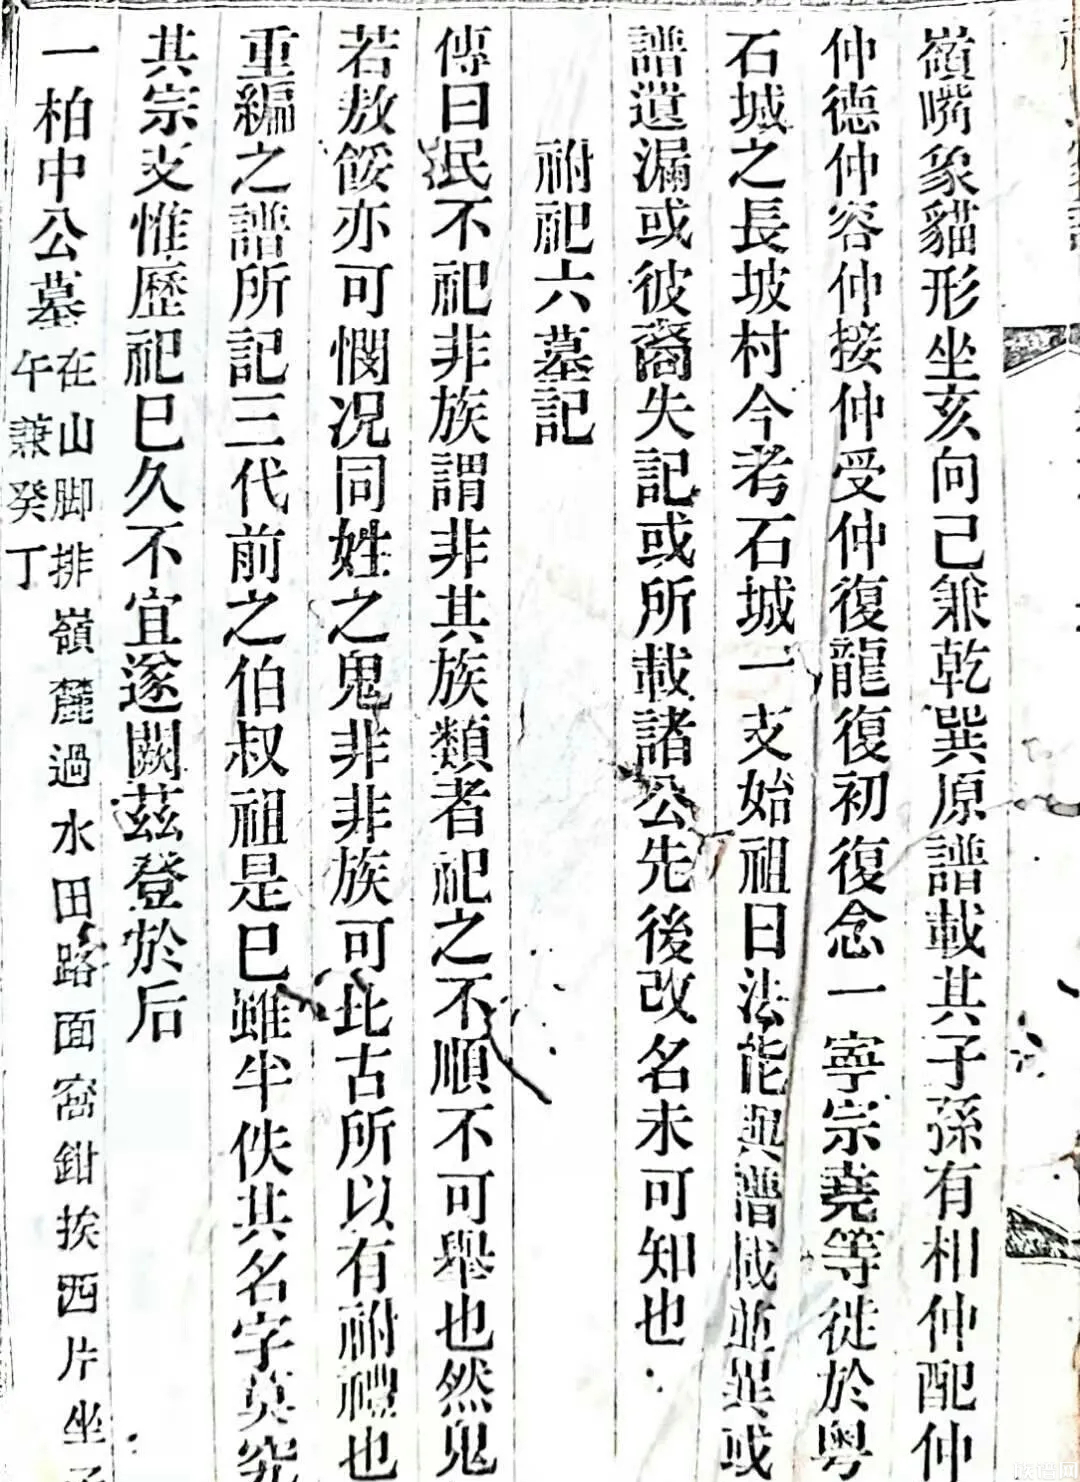 嶺嘴象貓形坐亥向己兼乾巽原譜載其子孫有相仲配仲
仲德仲容仲接仲受仲復龍復初復念一寧宗堯等徙於粤
石城之長坡村今考石城一支始祖日法能與譜咸並異或
譜遺漏或彼裔失記或所載諸公先後改名未可知也
祔祀六墓記
傳曰民不祀非族謂非其族類者祀之不順不可舉也然鬼
若敖餒亦可憫况同姓之鬼非非族可比古所以有祔禮也
重編之譜所記三代前之伯叔祖是巳雖半佚其名字莫究
其宗支惟歷祀巳久不宜遂闕茲登於后
一柏中公墓在山脚排嶺麓過水田路面窩鉗挨西片坐子
午兼癸丁
族谱网